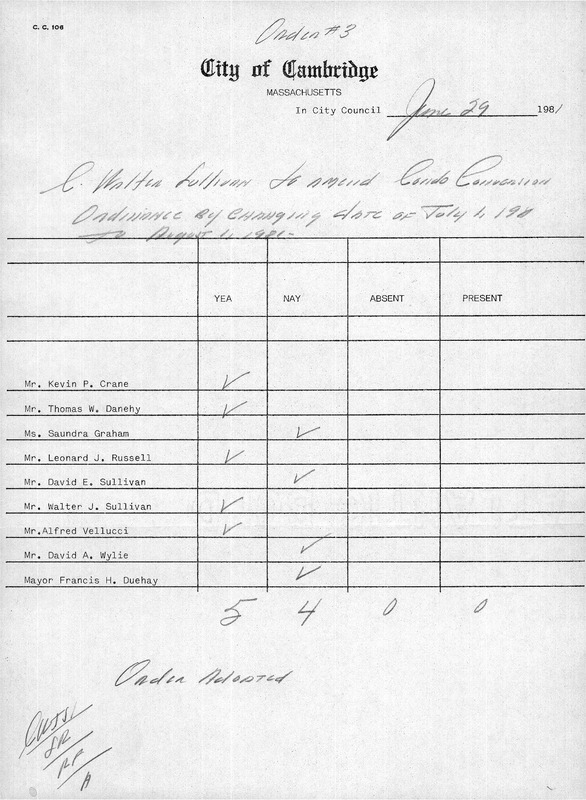 C. C. 106
Order #3
City of Cambridge
MASSACHUSETTS
In City Council June 29 1981
C. Walter Sullivan to amend Condo Conversion
Ordinance by changing date of July 1, 1981
to August 1, 1981-
YEA NAY ABSENT PRESENT
Mr. Kevin P. Crane ✓
Mr. Thomas W. Danehy ✓
Ms. Saundra Graham ✓
Mr. Leonard J. Russell ✓
Mr. David E. Sullivan ✓
Mr. Walter J. Sullivan ✓
Mr.Alfred Vellucci ✓
Mr. David A. Wylie ✓
Mayor Francis H. Duehay ✓
5 4 0 0
Order Adopted
CWJS
SR
RP
A